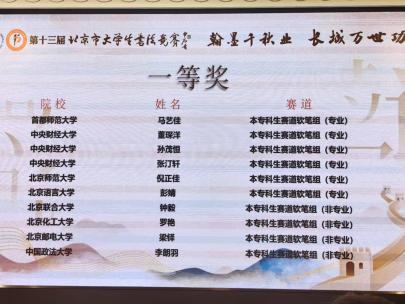 第十三届北京市大学生书法竞赛 翰墨千秋业 长城万世功
一等奖
院校 姓名 赛道
首都师范大学 马艺佳 本专科生赛道软笔组（专业）
中央财经大学 董琛洋 本专科生赛道软笔组（专业）
中央财经大学 孙茂恒 本专科生赛道软笔组（专业）
中央财经大学 张汀轩 本专科生赛道软笔组（专业）
北京师范大学 倪正佳 本专科生赛道软笔组（专业）
北京语言大学 彭婧 本专科生赛道软笔组（专业）
北京联合大学 钟毅 本专科生赛道软笔组（非专业）
北京化工大学 罗艳 本专科生赛道软笔组（非专业）
北京邮电大学 梁铎 本专科生赛道软笔组（非专业）
中国政法大学 李朗羽 本专科生赛道软笔组（非专业）